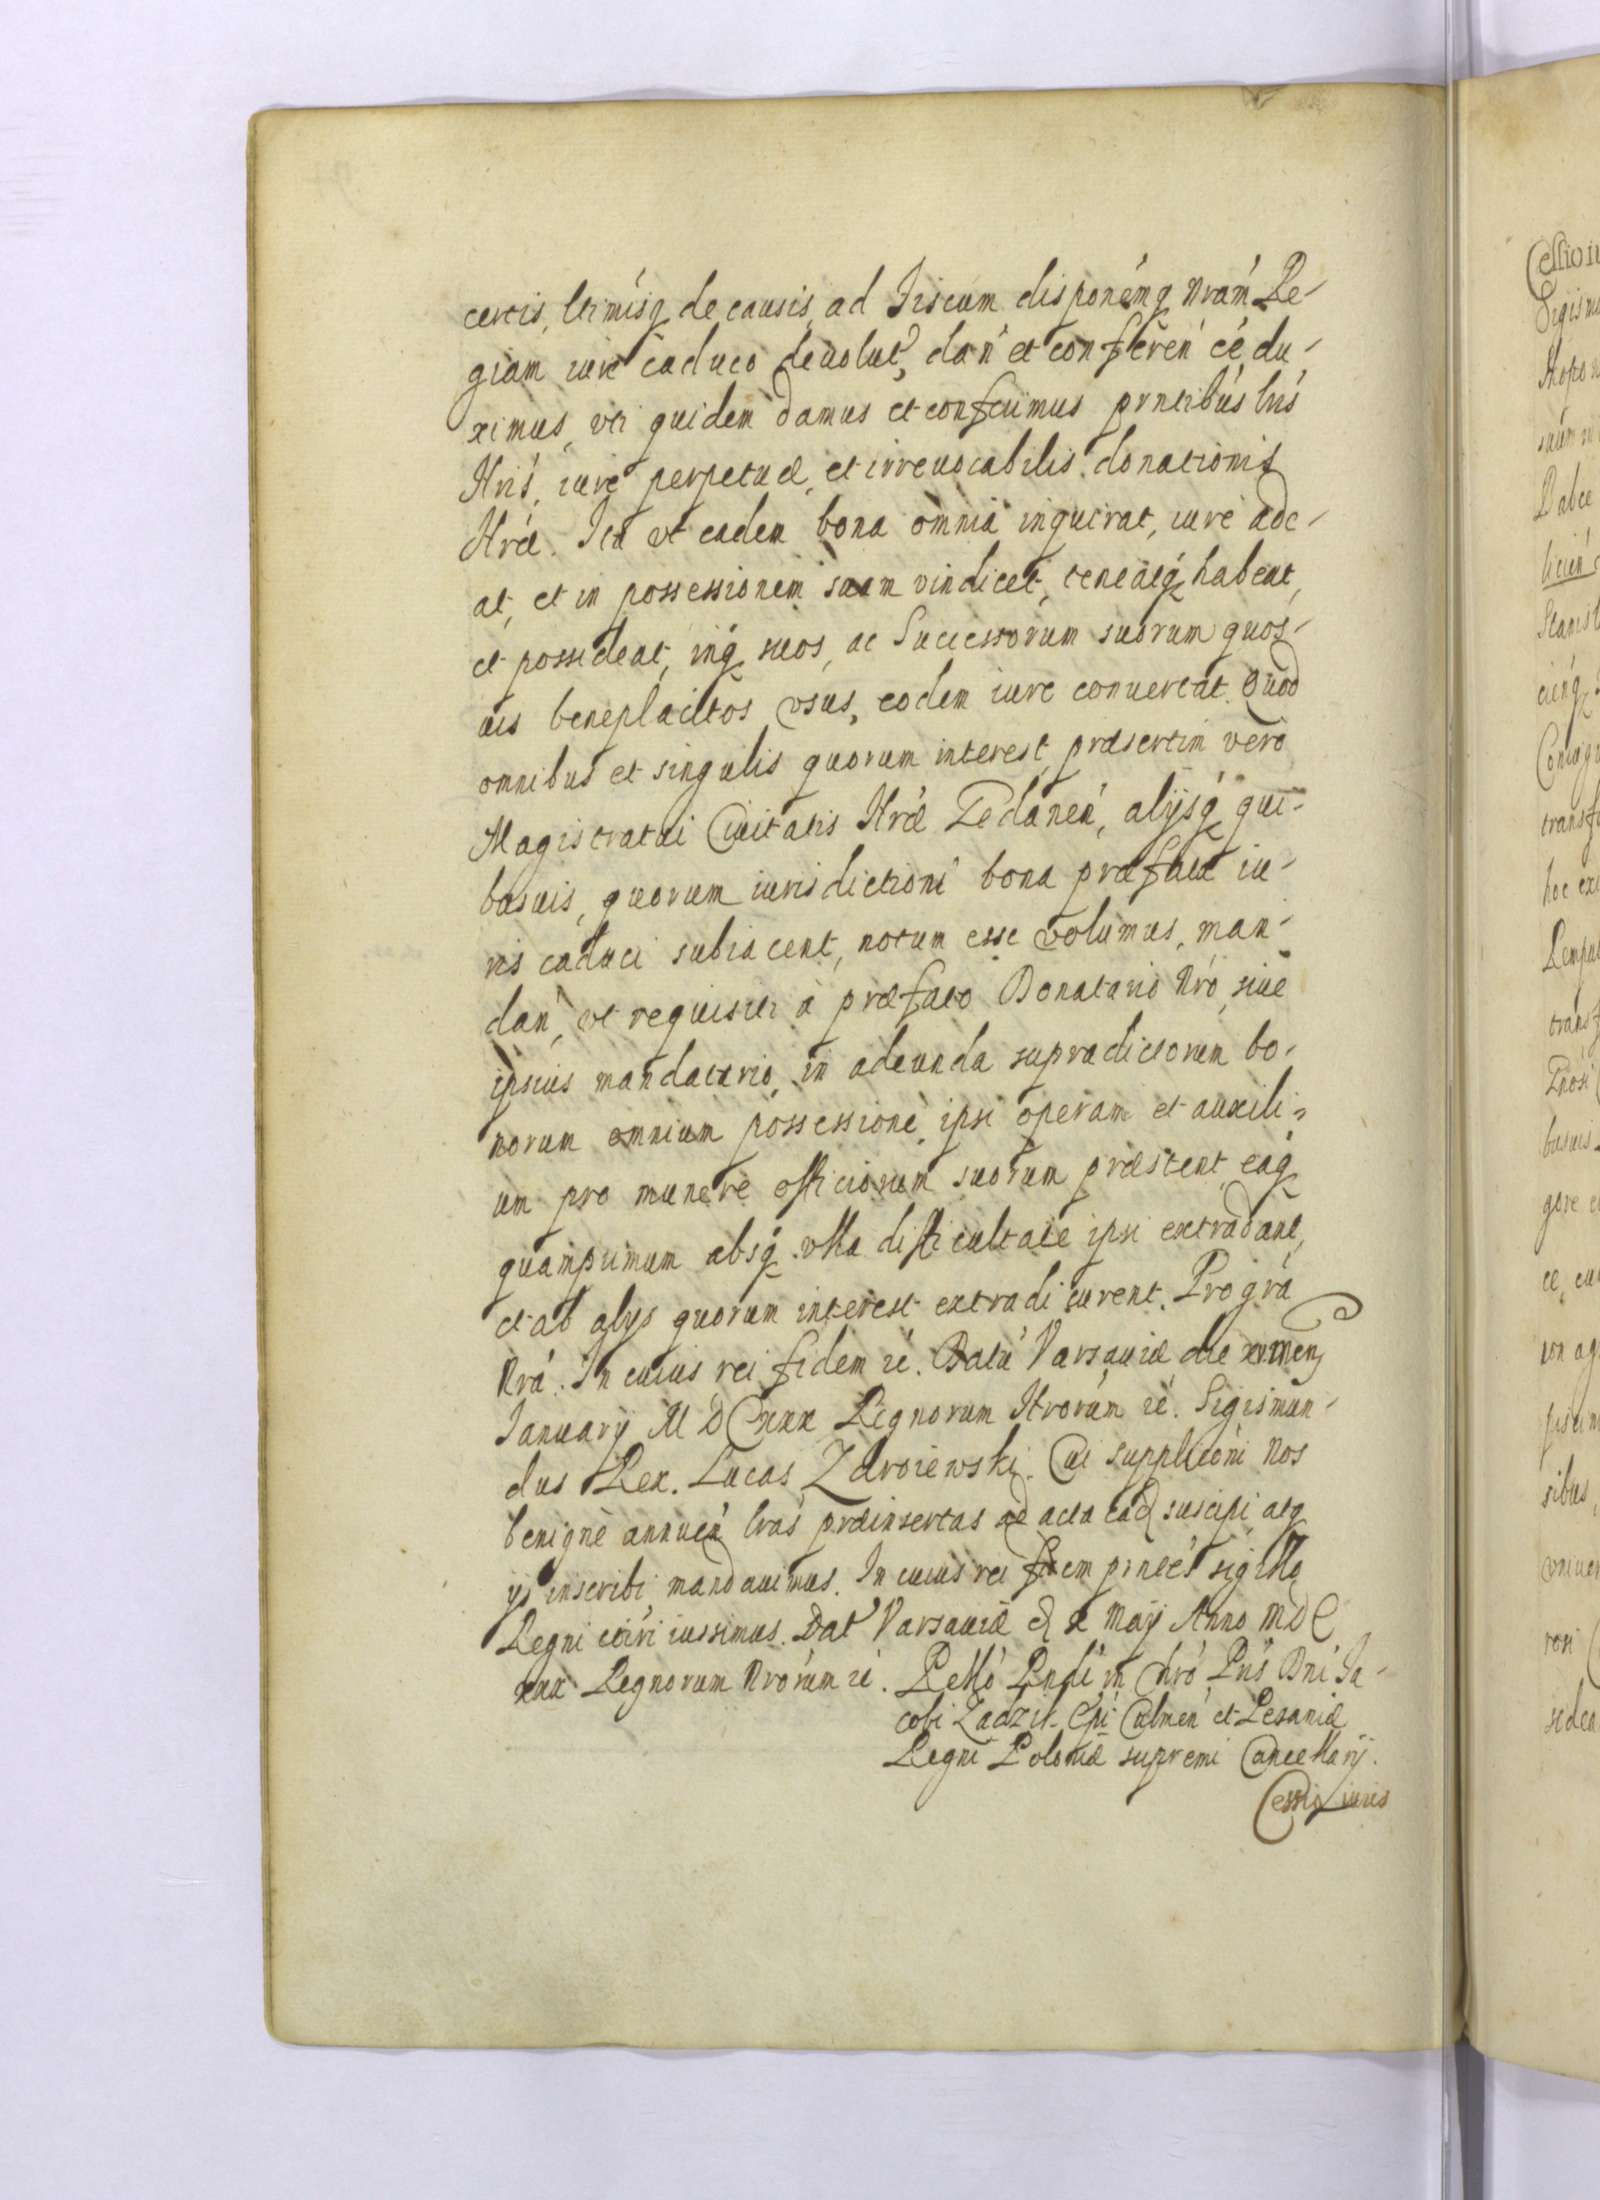 certis, ltimisq de causis, ad Fiscum disponémq nrám Re-
giam iure caduco deuolut, dań et conferén ée du-
ximus, vti quidem damus et conferimus prntibús lris
Nris, iure perpetuæ, et irreuocabilis donationis
Nræ. Ita vt eadem bona omnia inquirat, iure ade-
at, et in possessionem suam vindicet, teneatq habeat,
et possideat, inq suos, ac Successorum suorum quos-
uis beneplacitos vsus, eodem iure conuertat. Quod
omnibus et singulis quorum interest, præsertim vero
Magistratui Ciuitatis Nræ Gedanén, alijsq qui-
busuis, quorum iurisdictioni bona præfata iu-
ris caduci subiacent, notum esse volumus, man-
dań, vt requisiti à præfato Donatario Nró, siue
ipsius mandatario, in adeunda supradictorum bo-
norum omnium possessione, ipsi operam et auxili-
um pro munere officiorum suorum præstent, eaq
quamprimum absq vlla difficultate ipsi extradant,
et ab alys quorum interest extradi curent. Pro grá
Nrá. In cuius rei fidem ié. Datú Varsauiæ die xvi mens
Januarij M D C xxx Regnorum Nrorúm ié. Sigismun-
dus Rex. Lucas Zdroiewski. Cui supplicóni Nos
benignè annuén lras præinsertas ad acta ead suscipi atq
ijs inscribi mandauimus. In cuius rei fidem prntés sigillo
Regni cóiri iussimus. Dat Varsauiæ d x Maij Anno MDC
xxx Regnorum Nrorúm ié. Rello Rndi in Chró Pris Dni Ja-
cobi Zadzik Epi Culmén et Pesaniæ
Regni Poloniæ supremi Cancellarij.
Cessio iuris